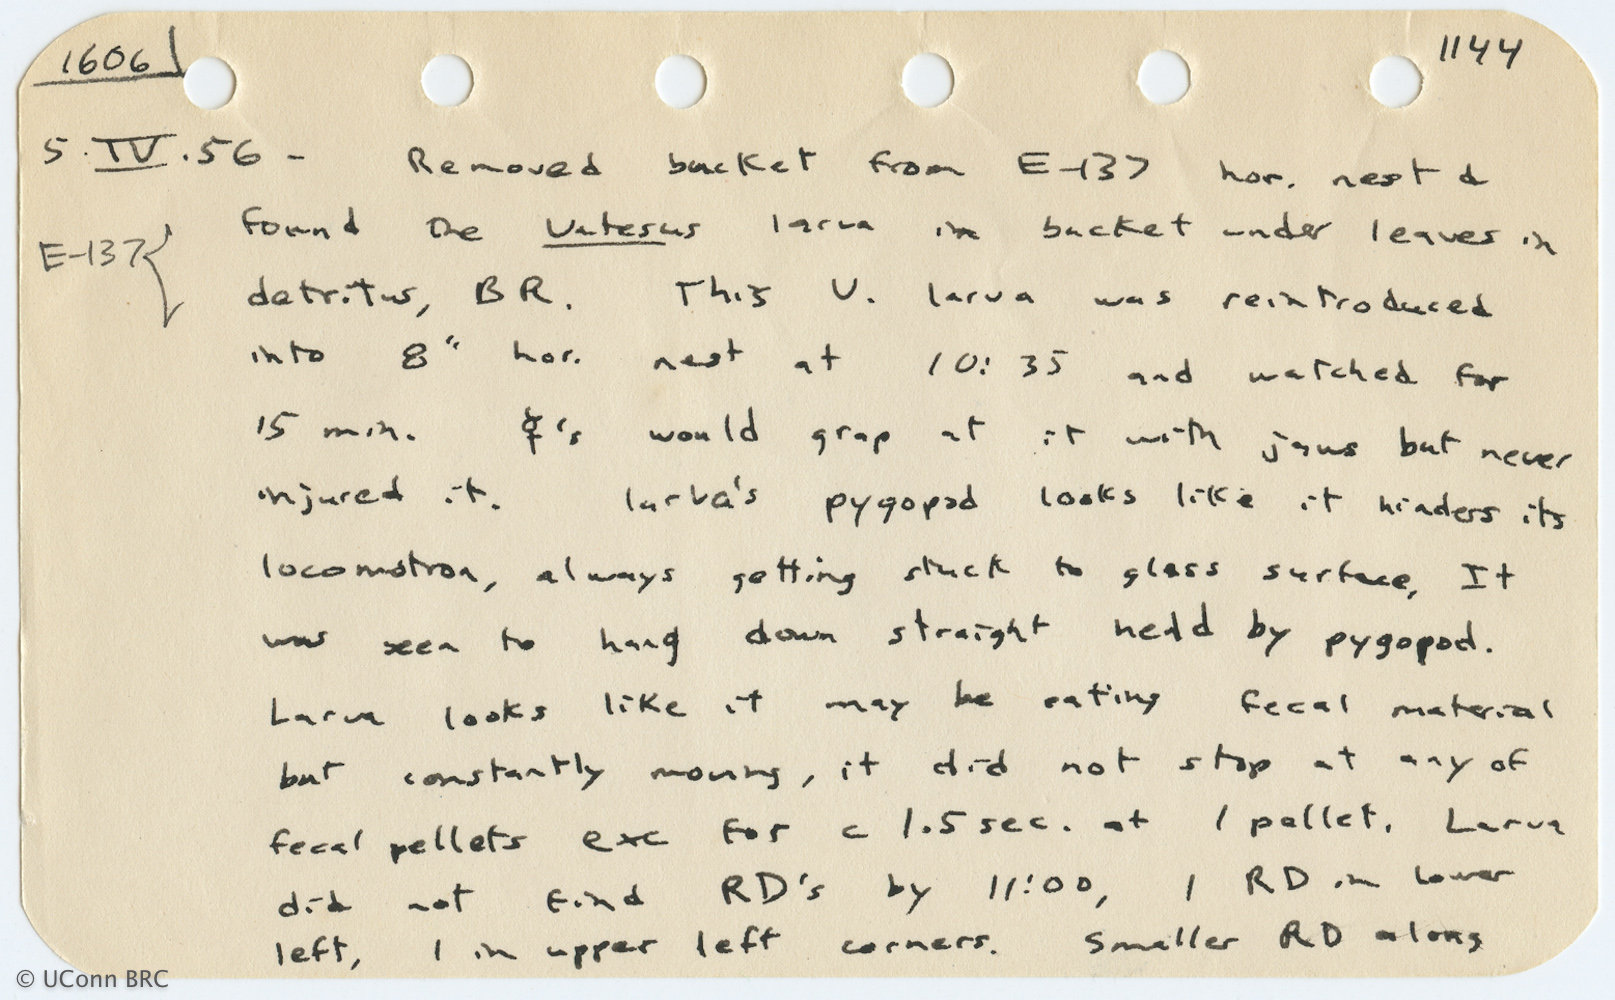 1606 1144
5.IV.56 - Removed bucket from E-137 hor. nest &
found one Vatesus larva in bucket under leaves in
E-137
detritus, BR. This V. larva was reintroduced
into 8" hor. nest at 10:35 and watched for
15 min. ☿'s would grap at it with jaws but never
injured it. larva's pygopod looks like it hinders its
locomotion, always getting stuck to glass surface, It
was seen to hang down straight held by pygopod.
Larva looks like it may be eating fecal material
but constantly moving, it did not stop at any of
fecal pellets exc for c 1.5 sec. at 1 pellet. Larva
did not find RD's by 11:00, 1 RD in lower
left, 1 in upper left corners. Smaller RD along
© UConn BRC